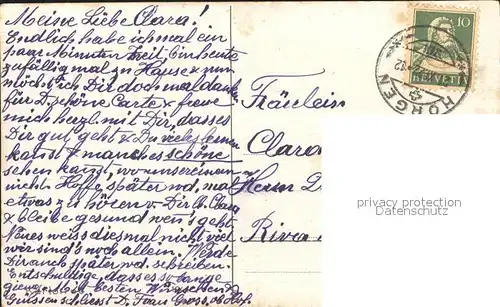 Meine Liebe Clara!
Endlich habe ich mal ein
paar Minuten Zeit. Bin heute
zufällig mal zu Hause & nun
möcht ich Dir doch mal danken
für D. schöne Carte & freue
mich herzl. mit Dir, dass es
Dir gut geht & Du viel lernen
kanst & manches schöne
sehen kanst, wo unsereinen
nicht. Hoffe, später wd. mal
etwas zu hören v. Dir lb. Clara
& bleibe gesund wen's geht.
Neues weiss diesmal nicht viel
wir sind's noch allein. Werde
Dir auch später wd. schreiben.
Entschuldige, dass es so lange
gieng. Mit besten Wünschen &
Grüssen schliesst D. Frau
Fräulein
Clara
Herrn D
Riva
10
HELVETIA
HORGEN
privacy protection
Datenschutz